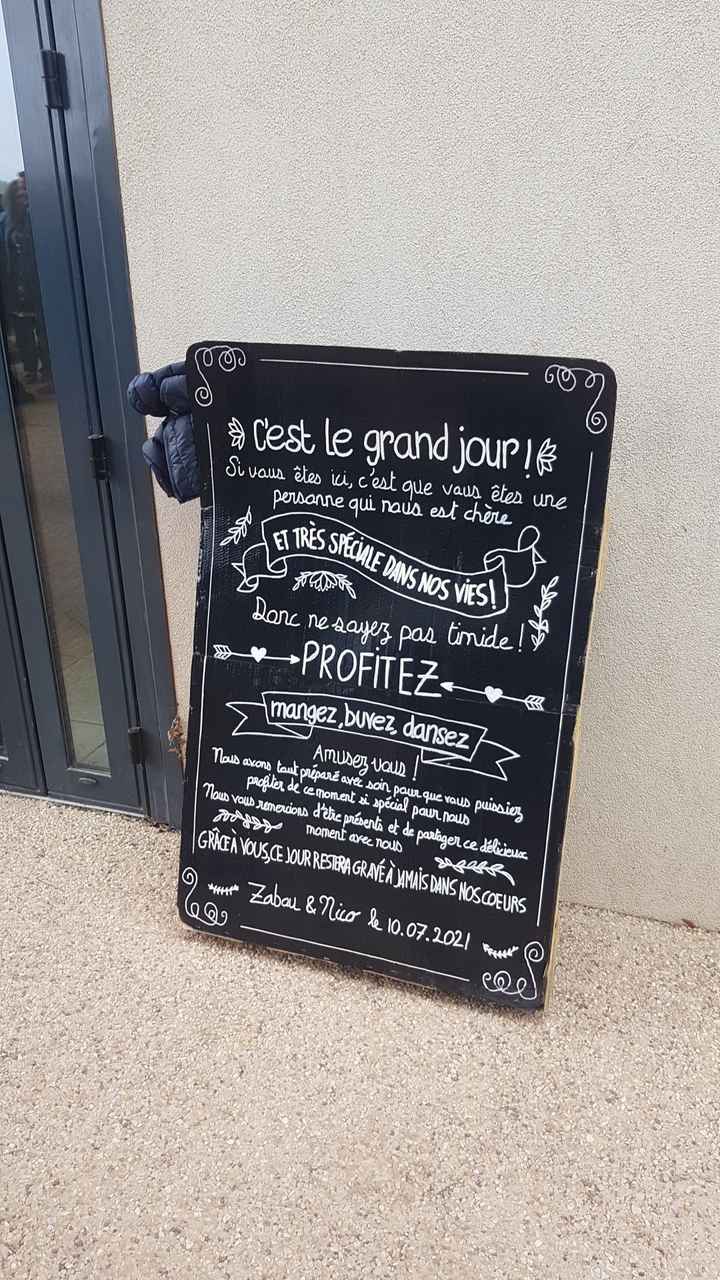 C'est le grand jour !
Si vous êtes ici, c'est que vous êtes une
personne qui nous est chère
ET TRÈS SPÉCIALE DANS NOS VIES !
Donc ne soyez pas timide !
PROFITEZ
mangez, buvez, dansez
Amusez-vous !
Nous avons tout préparé avec soin pour que vous puissiez
profiter de ce moment si spécial pour nous
Nous vous remercions d'être présents et de partager ce délicieux
moment avec nous
GRÂCE À VOUS, CE JOUR RESTERA GRAVÉ À JAMAIS DANS NOS COEURS
Zabou & Nico le 10.07.2021